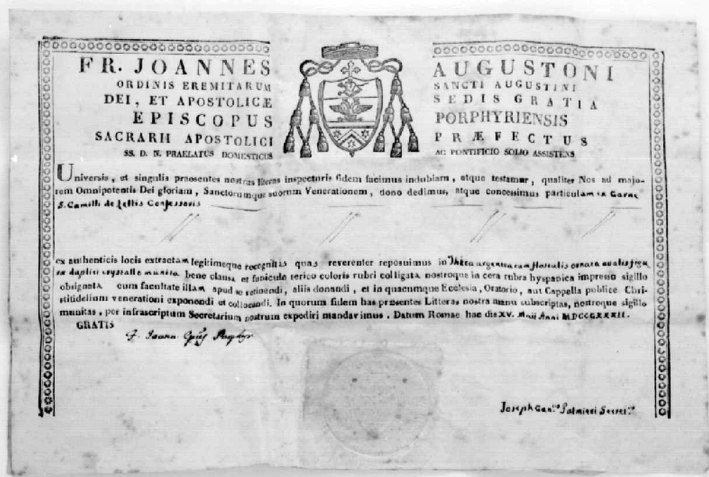 FR. JOANNES AUGUSTONI
ORDINIS EREMITARUM SANCTI AUGUSTINI
DEI, ET APOSTOLICÆ SEDIS GRATIA
EPISCOPUS PORPHYRIENSIS
SACRARII APOSTOLICI PRÆFECTUS
SS. D. N. PRAELATUS DOMESTICUS AC PONTIFICIO SOLIO ASSISTENS
Universis, et singulis praesentes nostras literas inspecturis fidem facimus indubiam, atque testamur, qualiter Nos ad majo-
rem Omnipotentis Dei gloriam, Sanctorumque suorum Venerationem, dono dedimus, atque concessimus particulam ex Carne
S. Camilli de Lellis Confessoris
ex authenticis locis extractam legitimeque recognitis quas reverenter reposuimus in Theca argentea ornata ovalis
ex duplici crystallo munita bene clausa et funiculo serico coloris rubri colligata nostroque in cera rubra hyspanica impresso sigillo
obsignata cum facultate illam apud se retinendi, aliis donandi, et in quacumque Ecclesia, Oratorio, aut Cappella publice Chri-
stifidelium venerationi exponendi et collocandi. In quorum fidem has praesentes Litteras nostra manu subscriptas, nostroque sigillo
munitas, per infrascriptum Secretarium nostrum expediri mandavimus. Datum Romae hac die XV. Maii Anni MDCCCXXXII.
GRATIS
F. Joann. Epus Porphyr.
Joseph Can.º Palmieri Secret.º